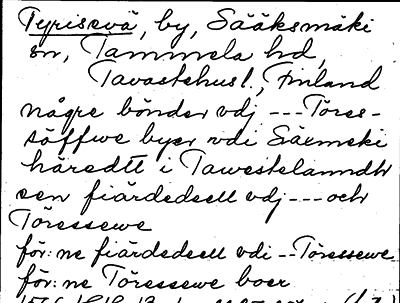 Tyrisevä, by, Sääksmäki
sn, Tammela hd,
Tavastehusl., Finland
någre bönder vdj --- Töres-
söffwe byer vdi Säxmeki
häredtt i Tawestelanndh
een fiärdedeell vdj --- och
Töressewe
för: ne fiärdedeell vdi -- Töressewe
för: ne Töressewe boer